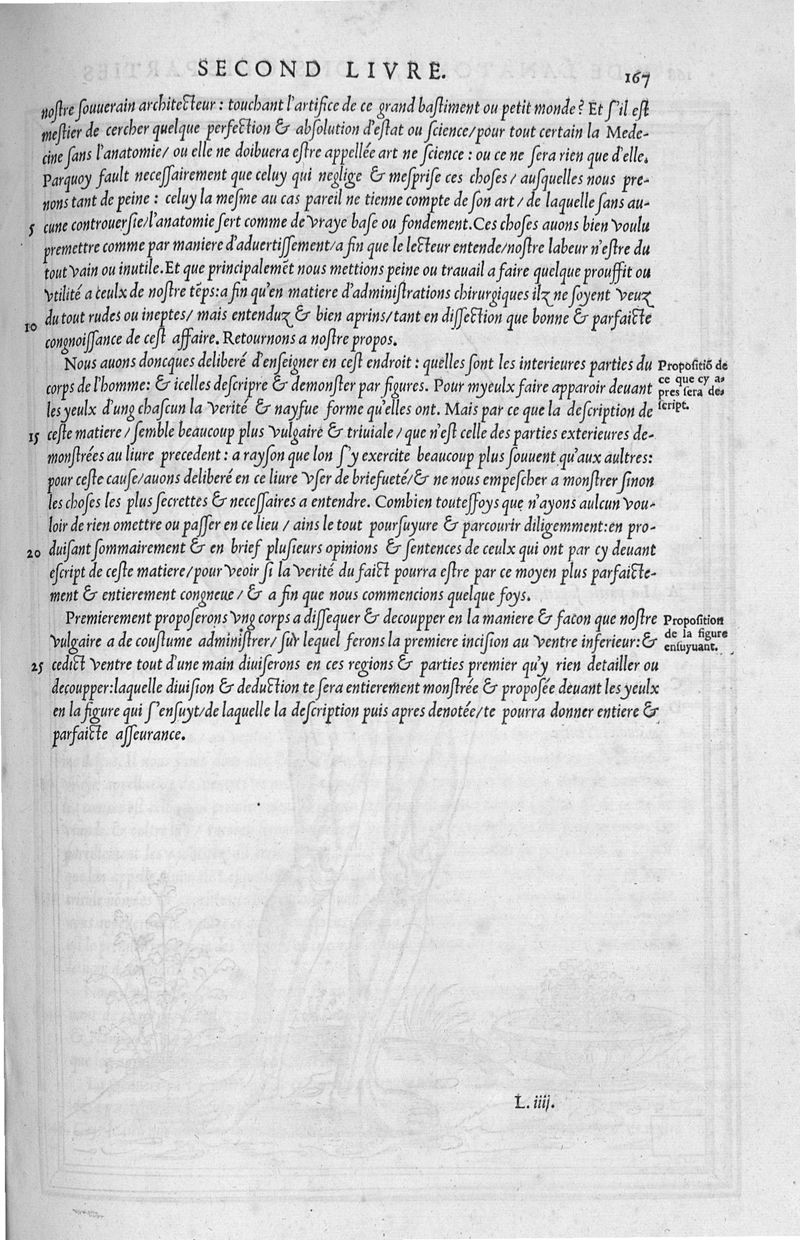 SECOND LIVRE. 167
noſtre ſouuerain architecteur : touchant l'artifice de ce grand baſtiment ou petit monde? Et ſ'il eſt
meſtier de cercher quelque perfection & abſolution d'eſtat ou ſcience/pour tout certain la Mede-
cine ſans l'anatomie/ ou elle ne doibuera eſtre appellée art ne ſcience : ou ce ne ſera rien que d'elle.
Parquoy fault neceſſairement que celuy qui neglige & meſpriſe ces choſes / auſquelles nous pre-
nons tant de peine : celuy la meſme au cas pareil ne tienne compte de ſon art / de laquelle ſans au-
5 cune controuerſie/l'anatomie ſert comme de vraye baſe ou fondement. Ces choſes auons bien voulu
premettre comme par maniere d'aduertiſſement/a fin que le lecteur entende/noſtre labeur n'eſtre du
tout vain ou inutile. Et que principalemēt nous mettions peine ou trauail a faire quelque prouffit ou
vtilité a ceulx de noſtre tēps:a fin qu'en matiere d'adminiſtrations chirurgiques ilz ne ſoyent veuz
10 du tout rudes ou ineptes/ mais entenduz & bien aprins/tant en diſſection que bonne & parfaicte
congnoiſſance de ceſt affaire. Retournons a noſtre propos.
Nous auons doncques deliberé d'enſeigner en ceſt endroit : quelles ſont les interieures parties du
Propoſitiō de
ce que cy a-
pres ſera de-
ſcript.
corps de l'homme: & icelles deſcripre & demonſter par figures. Pour myeulx faire apparoir deuant
les yeulx d'ung chaſcun la verité & nayfue forme qu'elles ont. Mais par ce que la deſcription de
15 ceſte matiere / ſemble beaucoup plus vulgaire & triuiale / que n'eſt celle des parties exterieures de-
monſtrées au liure precedent : a rayſon que lon ſ'y exercite beaucoup plus ſouuent qu'aux aultres:
pour ceſte cauſe/auons deliberé en ce liure vſer de briefueté/& ne nous empeſcher a monſtrer ſinon
les choſes les plus ſecrettes & neceſſaires a entendre. Combien touteſfoys que n'ayons aulcun vou-
loir de rien omettre ou paſſer en ce lieu / ains le tout pourſuyure & parcourir diligemment:en pro-
20 duiſant ſommairement & en brief pluſieurs opinions & ſentences de ceulx qui ont par cy deuant
eſcript de ceſte matiere/pour veoir ſi la verité du faict pourra eſtre par ce moyen plus parfaicte-
ment & entierement congneue / & a fin que nous commencions quelque foys.
Premierement propoſerons vng corps a diſſequer & decoupper en la maniere & facon que noſtre
Propoſition
de la figure
enſuyuant.
vulgaire a de couſtume adminiſtrer/ ſur lequel ferons la premiere inciſion au ventre inferieur:&
25 cedict ventre tout d'une main diuiſerons en ces regions & parties premier qu'y rien detailler ou
decoupper:laquelle diuiſion & deduction te ſera entierement monſtrée & propoſée deuant les yeulx
en la figure qui ſ'enſuyt/de laquelle la deſcription puis apres denotée/te pourra donner entiere &
parfaicte aſſeurance.
L. iiij.